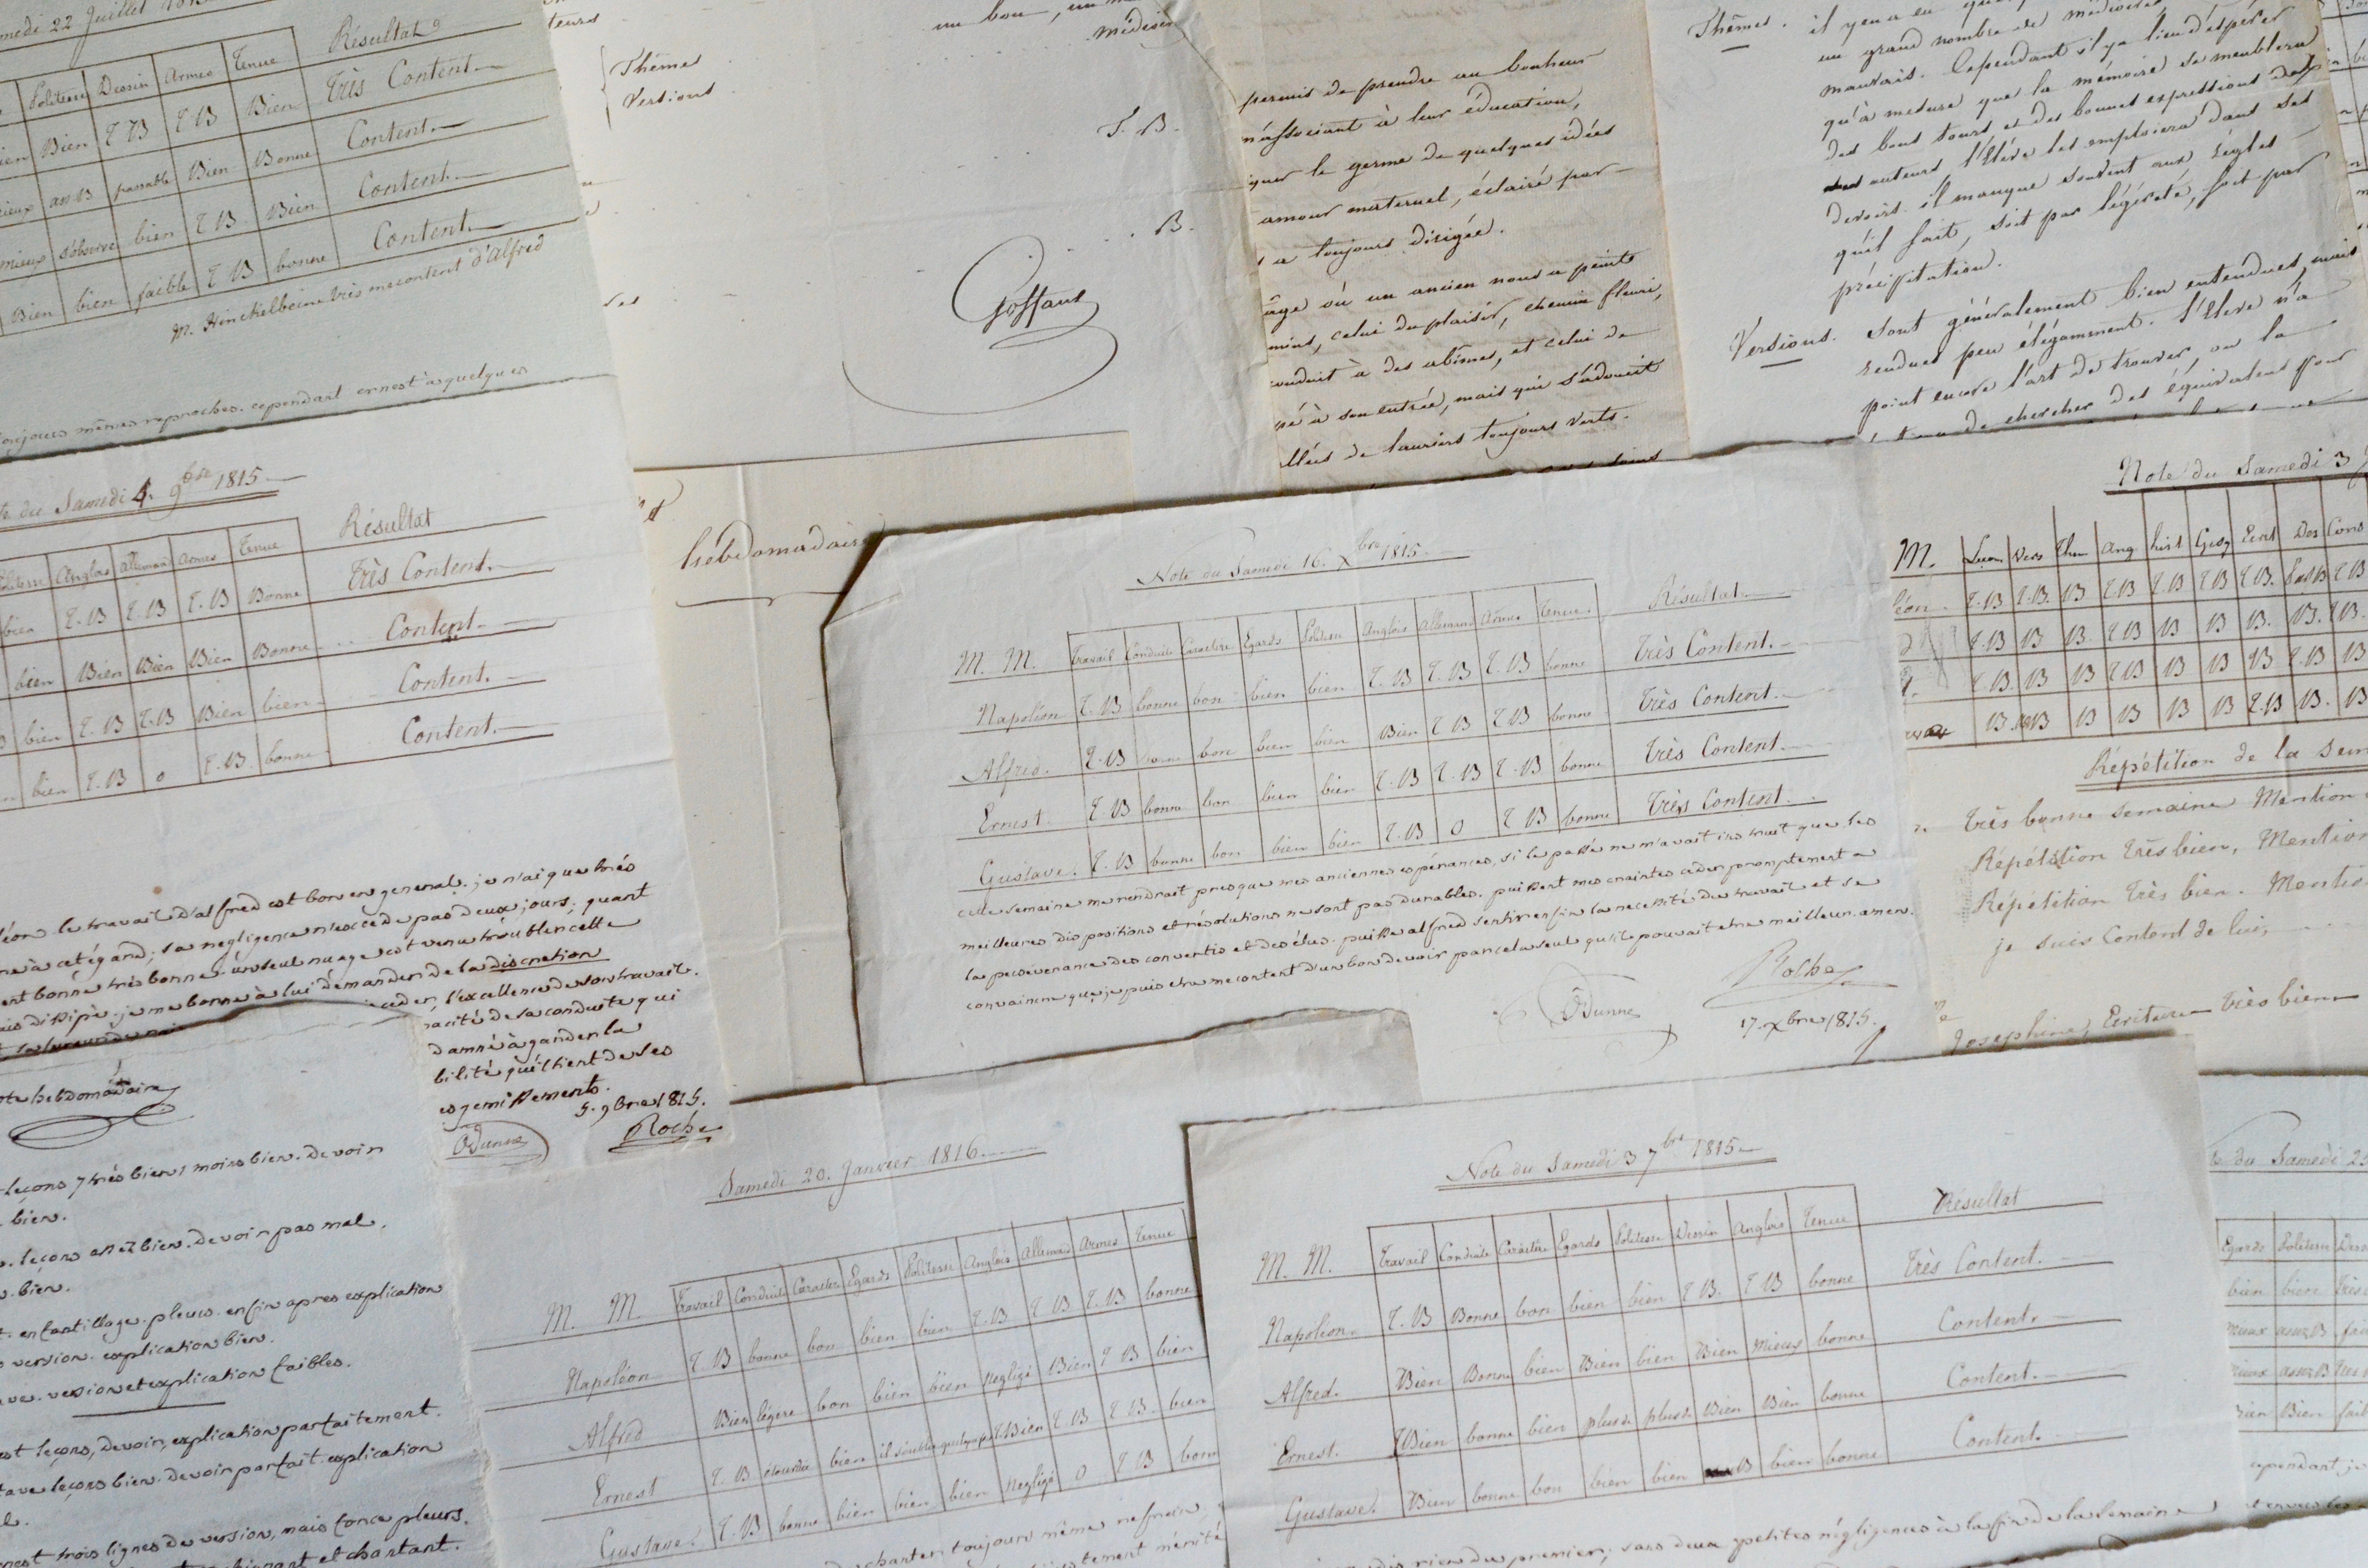 Samedi 22 Juillet
Politesse Dessin Armes Tenue Résultat
Bien Bien T B T B Bien Très Content.
mieux ass B passable Bien Bonne Content.
mieux s'observe bien T. B Bien Content.
Bien bien faible T. B bonne Content.
M. Hinckelbeine très mecontent d'Alfred
toujours mêmes reproches. cependant ernest a quelques
du Samedi 4. 9bre 1815.
Politesse Anglais Allemand Armes Tenue Résultat
bien T. B T. B T. B Bonne Très Content.
bien Bien Bien Bien Bonne Content.
bien T. B T. B Bien bien Content.
bien T. B 0 T. B. bonne Content.
le travail d'alfred est bon en general. je n'ai que très
à cet égard; sa negligence n'excède pas deux jours; quant
bonne très bonne. un seul nuage est venu troubler cette
dissipé. je me borne à lui demander de la discretion
ceder, l'excellence de son travail.
de sa conduite qui
à garder la
qu'il tient de ses
et gemissements.
5. 9bre 1815.
Odunne Roche
note hebdomadaire
leçons 7 très bien 1 moins bien. devoir
bien.
leçons assez bien. devoir pas mal.
bien.
enfantillage. pleurs. enfin apres explication
version. explication bien.
version et explication faibles.
leçons, devoir, explication parfaitement.
leçons bien. devoir parfait. explication
ernest trois lignes de version, mais force pleurs.
et chantant.
teurs
Thèmes
Versions
un bon, un
médiocre
T. B.
B.
Goffaux
hebdomadaire
permis de prendre au bonheur
m'associant à leur éducation,
le germe de quelques idées
amour maternel, éclairé par
a toujours dirigée.
âge où un ancien nous a peints
celui du plaisir, chemin fleuri,
conduit à des abîmes, et celui de
à son entrée, mais qui s'adoucit
allées de lauriers toujours verts.
soins
Thèmes. il y en a eu
un grand nombre de médiocres
mauvais. Cependant il y a lieu d'espérer
qu'à mesure que la mémoire se meublera
des bons tours, et des bonnes expressions des
auteurs l'Elève les emploiera dans ses
devoirs. il manque souvent aux règles
qu'il sait, soit par légèreté, soit par
précipitation.
Versions. Sont généralement bien entendues, mais
rendues peu élégamment. l'Elève n'a
point encore l'art de trouver, ou la
de chercher des équivalens pour
Note du Samedi 16. Xbre 1815.
M. M. Travail Conduite Caractère Egards Politesse Anglais Allemand Armes Tenue. Résultat.
Napoléon T. B bonne bon bien bien T. B T. B T. B bonne Très Content.
Alfred. T. B bonne bon bien bien Bien T B T B bonne Très Content.
Ernest T. B bonne bon bien bien T. B T. B T. B bonne Très Content.
Gustave. T. B bonne bon bien bien T. B 0 T B bonne Très Content.
cette semaine me rendrait presque mes anciennes espérances, si le passé ne m'avait instruit que les
meilleures dispositions et résolutions ne sont pas durables. puissent mes craintes ceder promptement a
la persévérance des convertis et des élus. puisse alfred sentir enfin la necessité du travail et se
convaincre que je puis etre mecontent d'un bon devoir par cela seul qu'il pouvait etre meilleur. amen.
Odunne Roche
17. Xbre 1815.
Note du Samedi 3
M. Leçon Vers Them Ang hist Geog Ecrit Des Cons
T. B T. B. B T B T. B T B T B. Ass B T B
T. B B B. T B B B B. B. T B.
T. B. B B T B B B B T. B B
B. ass B B B B B T. B B. B
Répétition de la Sem
Très bonne semaine Mention
Répétition très bien, Mention
Répétition très bien. Mention
je suis Content de lui,
Josephine, Ecriture très bien
Samedi 20. Janvier 1816.
M. M. Travail Conduite Caractère Egards Politesse Anglais Allemand Armes Tenue
Napoléon T. B bonne bon bien bien T. B T B T. B bonne
Alfred Bien légère bon bien bien Negligé Bien T B bien
Ernest T. B étourdie bien il s'oublie quelquefois T. Bien T. B T. B. bien
Gustave. T. B bonne bien bien bien Negligé 0 T B bonne
chanter toujours même refrain
mérité
Note du Samedi 3 7bre 1815
M. M. Travail Conduite Caractère Egards Politesse Dessin Anglais Tenue Résultat
Napoléon. T. B Bonne bon bien bien T B. T B bonne Très Content.
Alfred. Bien Bonne bien Bien bien Bien Mieux bonne Content.
Ernest. TBien bonne bien plus de plus de Bien Bien bonne Content.
Gustave. Bien bonne bon bien bien B bien bonne Content.
rien du premier; sans deux petites négligences à la fin de la semaine
du Samedi 25
Egards Politesse Dess
bien bien
mieux assez B
mieux assez B
Bien Bien
cependant, je